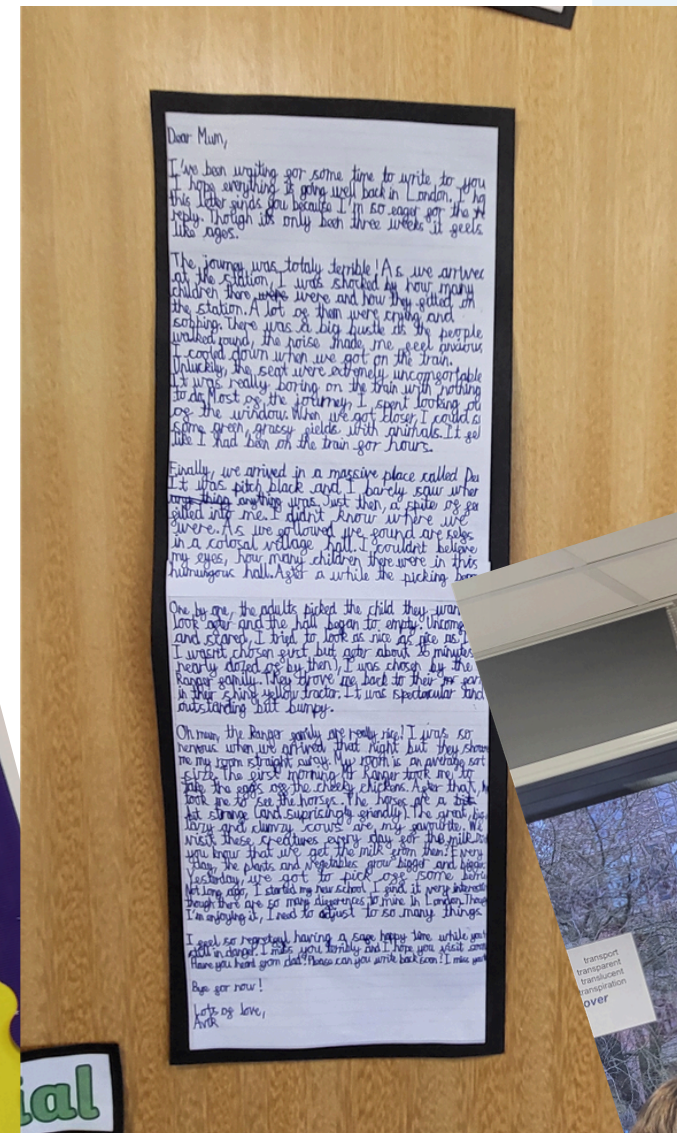 Dear Mum,
I've been waiting for some time to write to you
I hope everything is going well back in London. I ho
this letter finds you because I'm so eager for the
reply. Though its only been three weeks it feels
like ages.
The journey was totaly terrible! As we arrived
at the station, I was shocked by how many
children there were and how they filled on
the station. A lot of them were crying and
sobbing. There was a big bustle as the people
walked round, the noise made me feel anxious
I cooled down when we got on the train.
Unluckily, the seat were extremely uncomfortable
It was really boring on the train with nothing
to do. Most of the journey, I spent looking ou
of the window. When we got closer, I could s
some green, grassy fields with animals. It fel
like I had been on the train for hours.
Finally, we arrived in a massive place called
It was pitch black and I barely saw wher
anything was. Just then, a spite of fea
filled into me. I didn't know where we
were. As we followed we found are selfs
in a colosal village hall. I couldn't believe
my eyes, how many children there were in this
humungous hall. After a while the picking
One by one, the adults picked the child they wan
look after and the hall began to empty. Uncom
and scared, I tried to look as nice as nice as I
I wasn't chosen first but after about 16 minutes
nearly dozed of by then), I was chosen by the
Ranger family. They drove me back to their farm
in their shiny yellow tractor. It was spectacular and
outstanding but bumpy.
Oh mum, the Ranger family are really nice! I was so
nervous when we arrived that night but they show
me my room straight away. My room is an average sort
size. The first morning Mr Ranger took me to
take the eggs off the cheeky chickens. After that, h
took me to see the horses. The horses are a bit
bit strange (and suprisingly friendly). The great, big
lazy and clumzy cows are my favourite. We
visit these creatures every day for the milk.
you know that we get the milk from them? Every
day, the plants and vegetables grow bigger and bigger
Yesterday, we got to pick off some berri
Not long ago, I started my new school. I find it very interesti
though there are so many differences to mine in London. Though
I'm enjoying it, I need to adjust to so many things.
I feel so regretful having a safe happy time while you
still in danger. I miss you terribly and I hope you visit
Have you heard from dad? Please can you write back soon? I miss you
Bye for now!
Lots of love,
ial
transport
transparent
translucent
transpiration
over